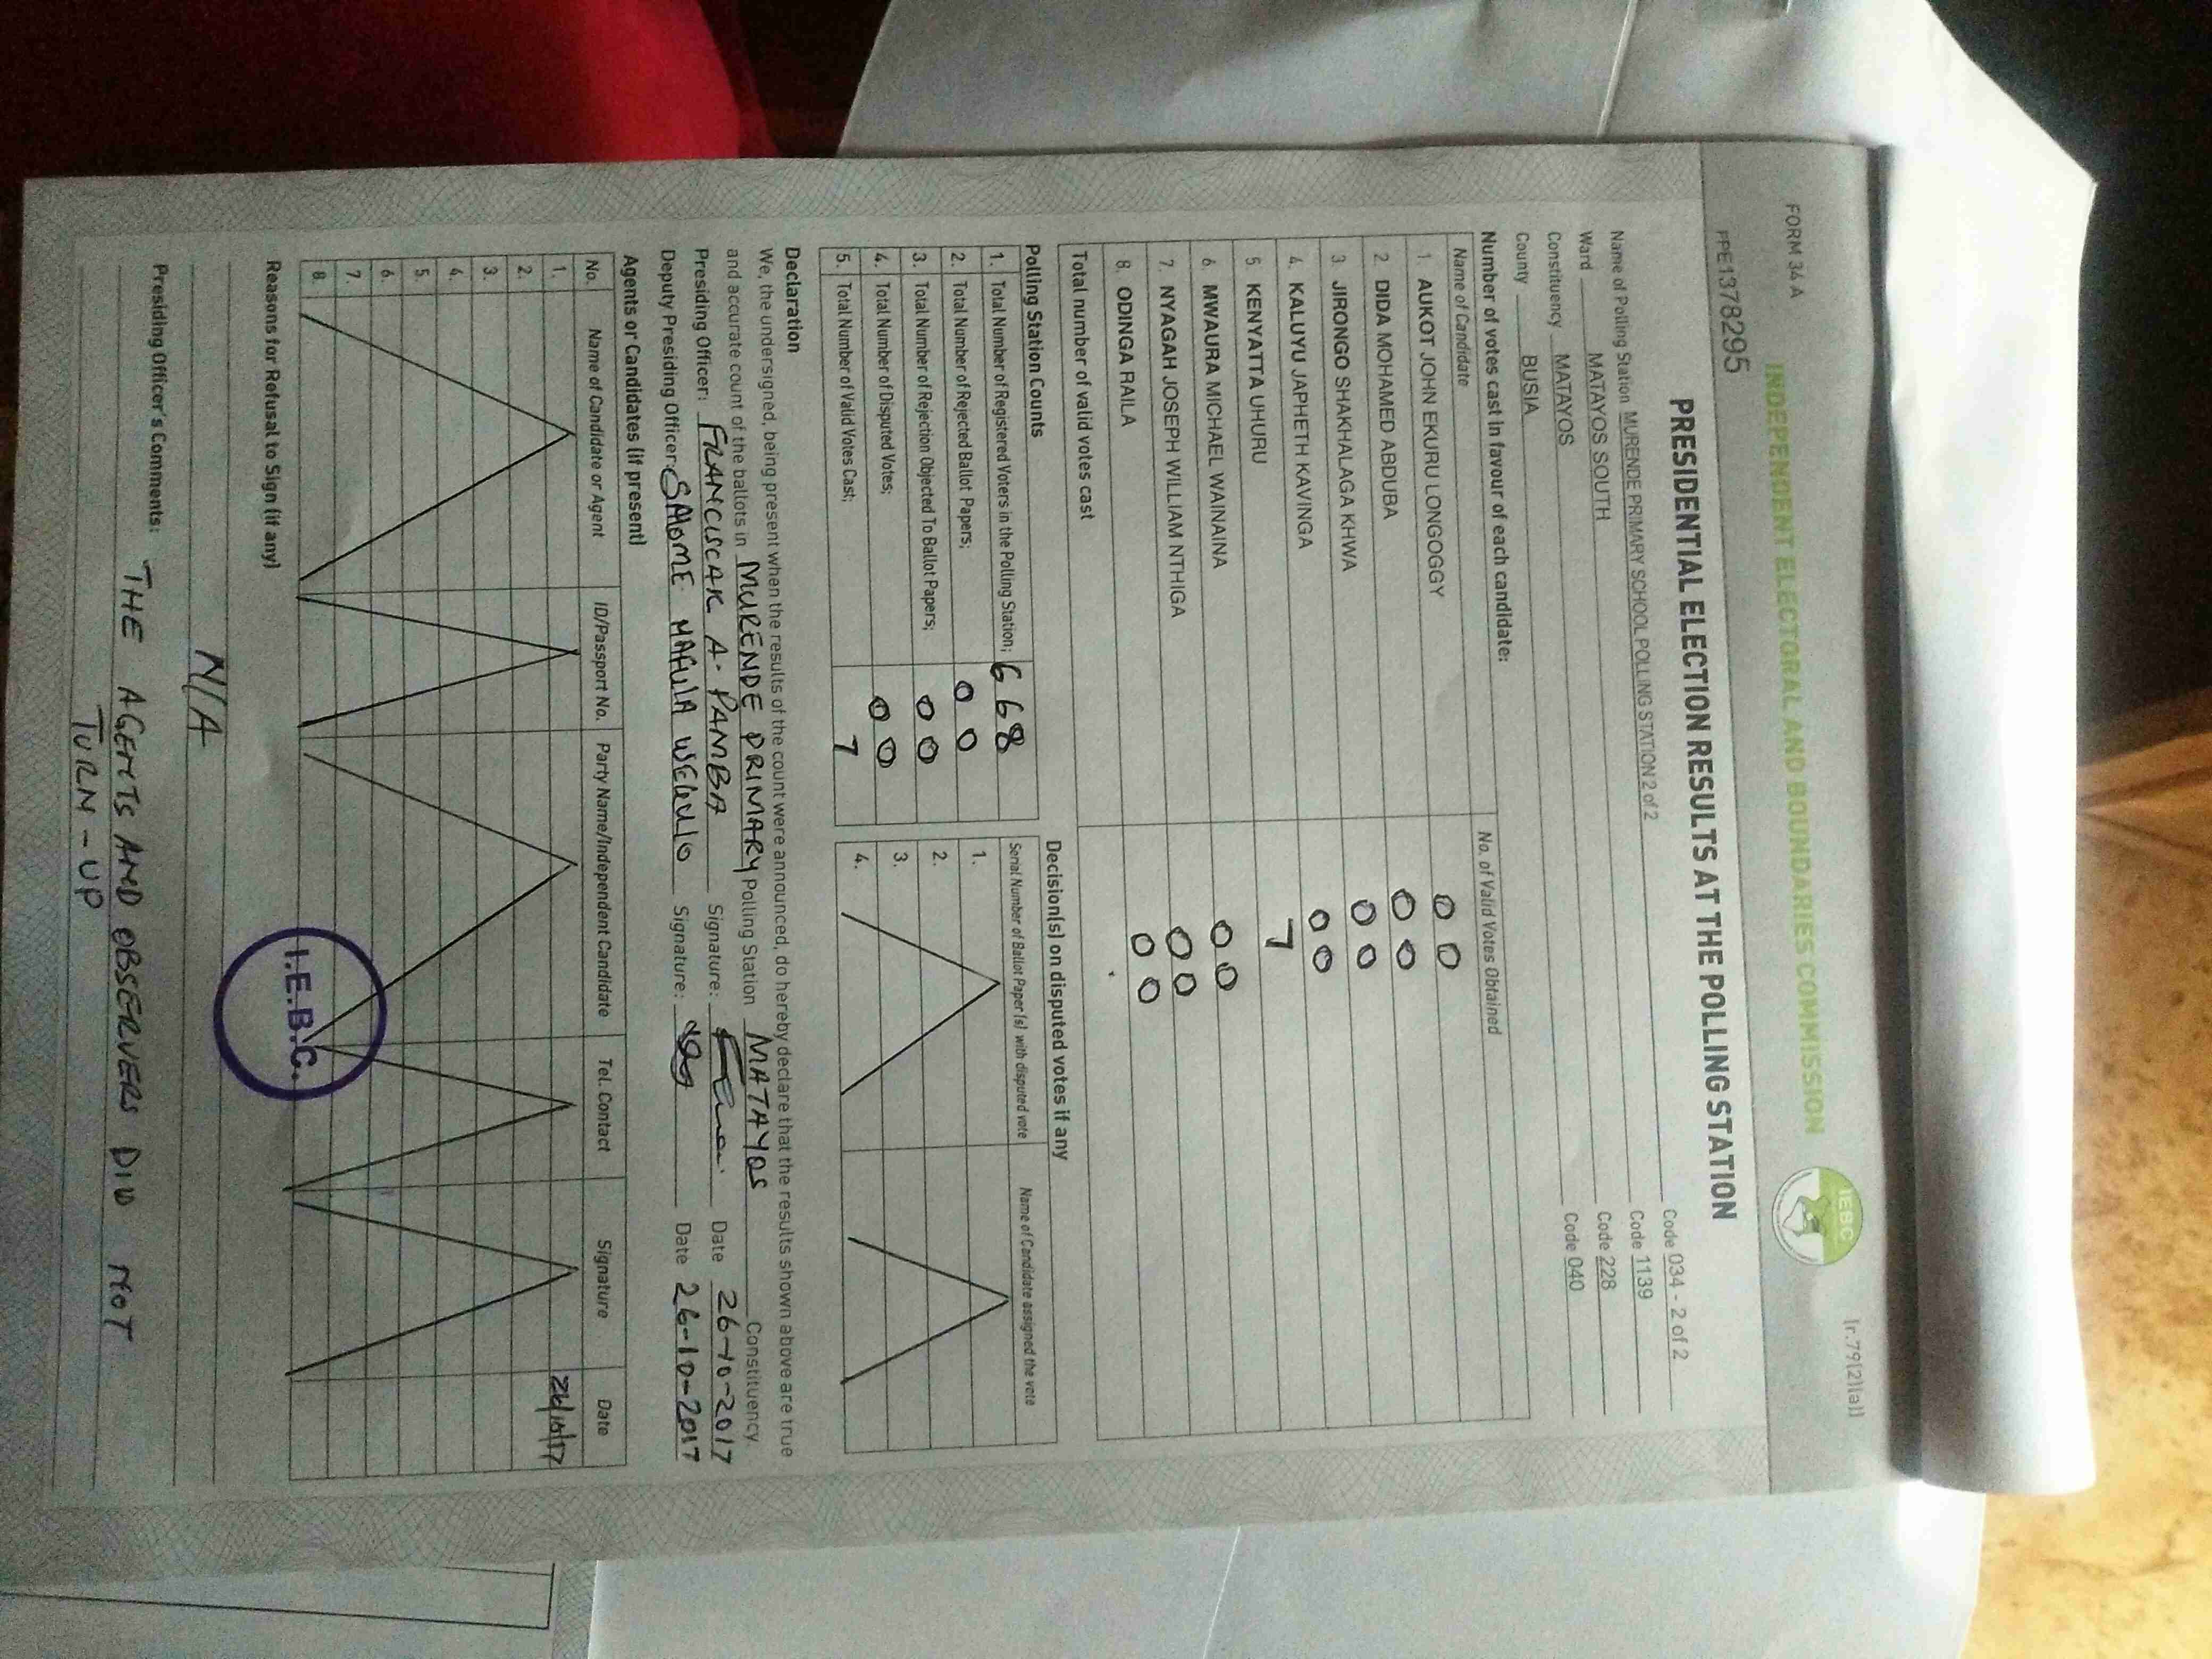 FORM 34 A
[r.79(2)(a)]
INDEPENDENT ELECTORAL AND BOUNDARIES COMMISSION
IEBC
PPE1378295
PRESIDENTIAL ELECTION RESULTS AT THE POLLING STATION
Name of Polling Station MURENDE PRIMARY SCHOOL POLLING STATION 2 of 2 Code 034 - 2 of 2
Ward MATAYOS SOUTH Code 1139
Constituency MATAYOS Code 228
County BUSIA Code 040
Number of votes cast in favour of each candidate:
Name of Candidate No. of Valid Votes Obtained
1. AUKOT JOHN EKURU LONGOGGY 0 0
2. DIDA MOHAMED ABDUBA 0 0
3. JIRONGO SHAKHALAGA KHWA 0 0
4. KALUYU JAPHETH KAVINGA 0 0
5. KENYATTA UHURU 7
6. MWAURA MICHAEL WAINAINA 0 0
7. NYAGAH JOSEPH WILLIAM NTHIGA 0 0
8. ODINGA RAILA 0 0
Total number of valid votes cast
Polling Station Counts
1. Total Number of Registered Voters in the Polling Station; 668
2. Total Number of Rejected Ballot Papers; 0 0
3. Total Number of Rejection Objected To Ballot Papers; 0 0
4. Total Number of Disputed Votes; 0 0
5. Total Number of Valid Votes Cast; 7
Decision(s) on disputed votes if any
Serial Number of Ballot Paper(s) with disputed vote Name of Candidate assigned the vote
1.
2.
3.
4.
Declaration
We, the undersigned, being present when the results of the count were announced, do hereby declare that the results shown above are true
and accurate count of the ballots in MURENDE PRIMARY Polling Station MATAYOS Constituency
Presiding Officer: FRANCISCAK A. PAMBA Signature: Date 26-10-2017
Deputy Presiding Officer: SALOME MAFULA Signature: Date 26-10-2017
Agents or Candidates (if present)
No. Name of Candidate or Agent ID/Passport No. Party Name/Independent Candidate Tel. Contact Signature Date
1. 26/10/17
2.
3.
4.
5.
6.
7.
8.
I.E.B.C.
Reasons for Refusal to Sign (if any)
N/A
Presiding Officer's Comments: THE AGENTS AND OBSERVERS DID NOT
TURN-UP